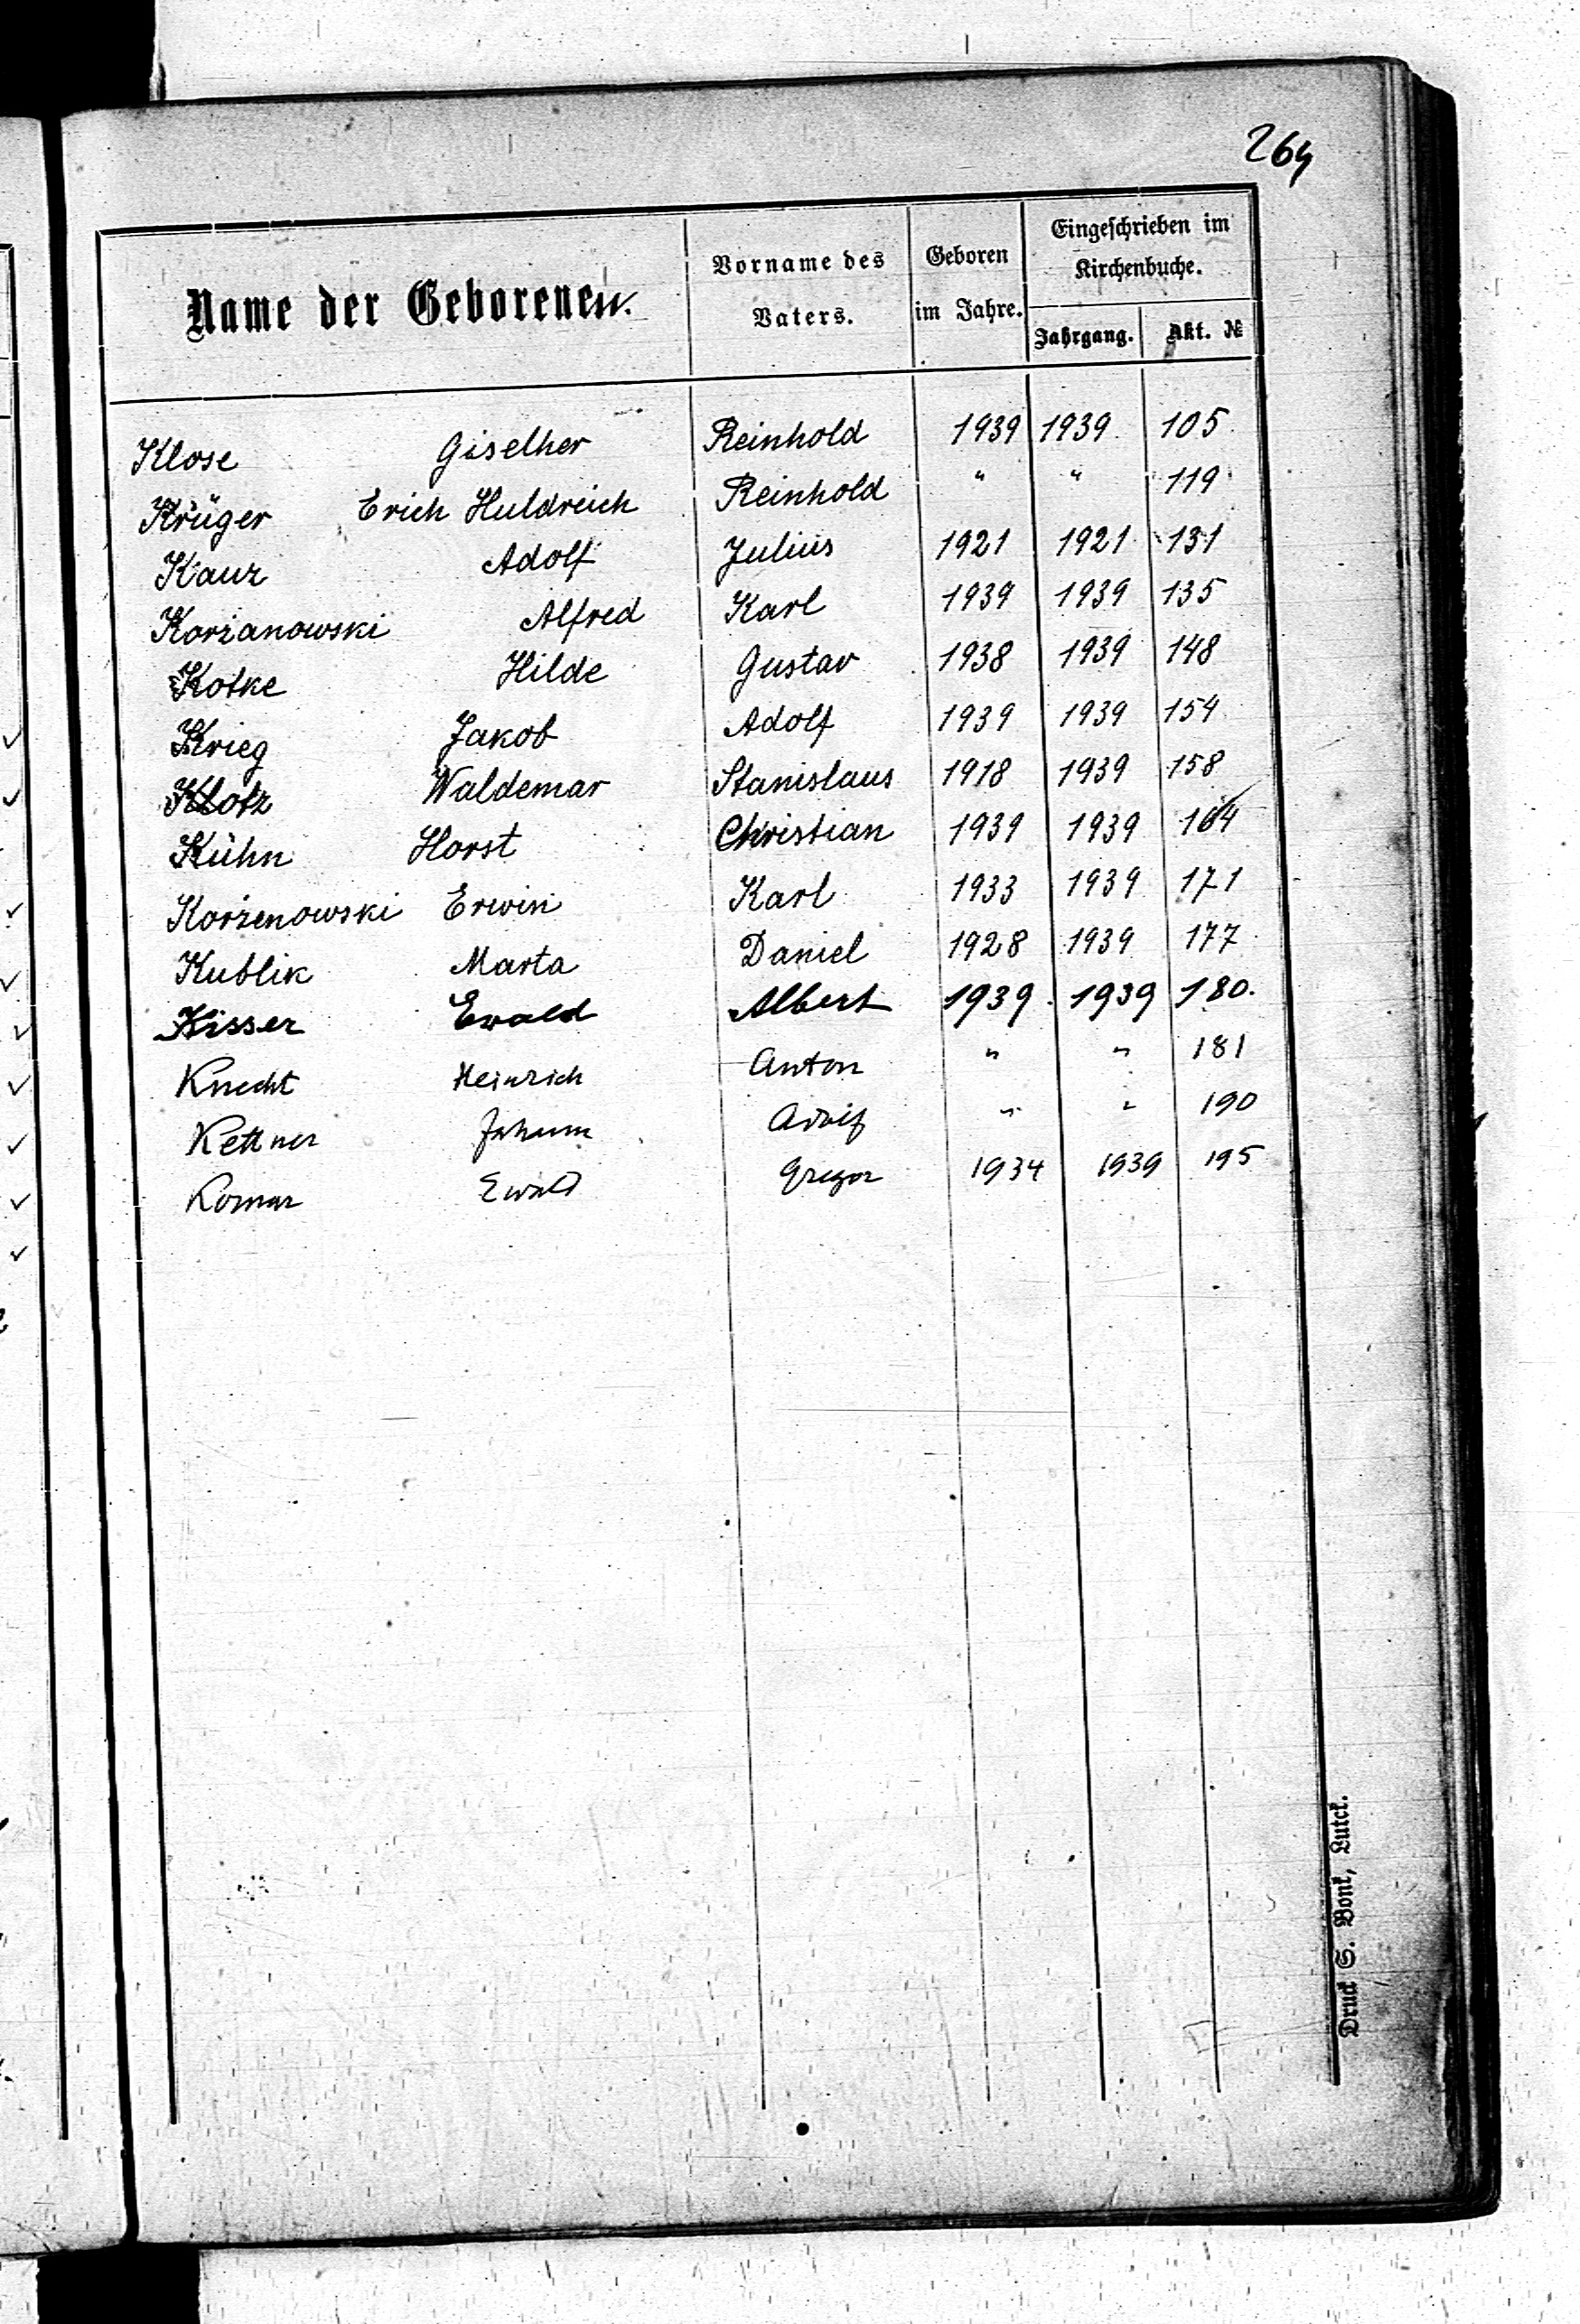 264
Name der Geborenen.
Vorname des
Vaters.
Geboren
im Jahre.
Eingeschrieben im
Kirchenbuche.
Jahrgang.
Akt. №
Klose Giselher Reinhold 1939 1939 105
Krüger Erich Huldreich Reinhold " " 119
Kauz Adolf Julius 1921 1921 131
Koržanowski Alfred Karl 1939 1939 135
Kotke Hilde Gustav 1938 1939 148
Krieg Jakob Adolf 1939 1939 154
Klotz Waldemar Stanislaus 1918 1939 158
Kühn Horst Christian 1939 1939 164
Korženowski Erwin Karl 1933 1939 171
Kublik Marta Daniel 1928 1939 177
Kisser Ewald Albert 1939 1939 180.
Knecht Heinrich Anton " " 181
Kettner Adolf " " 190
Komar Ewald Gregor 1934 1939 195
Druck S. Bonk, Lutck.